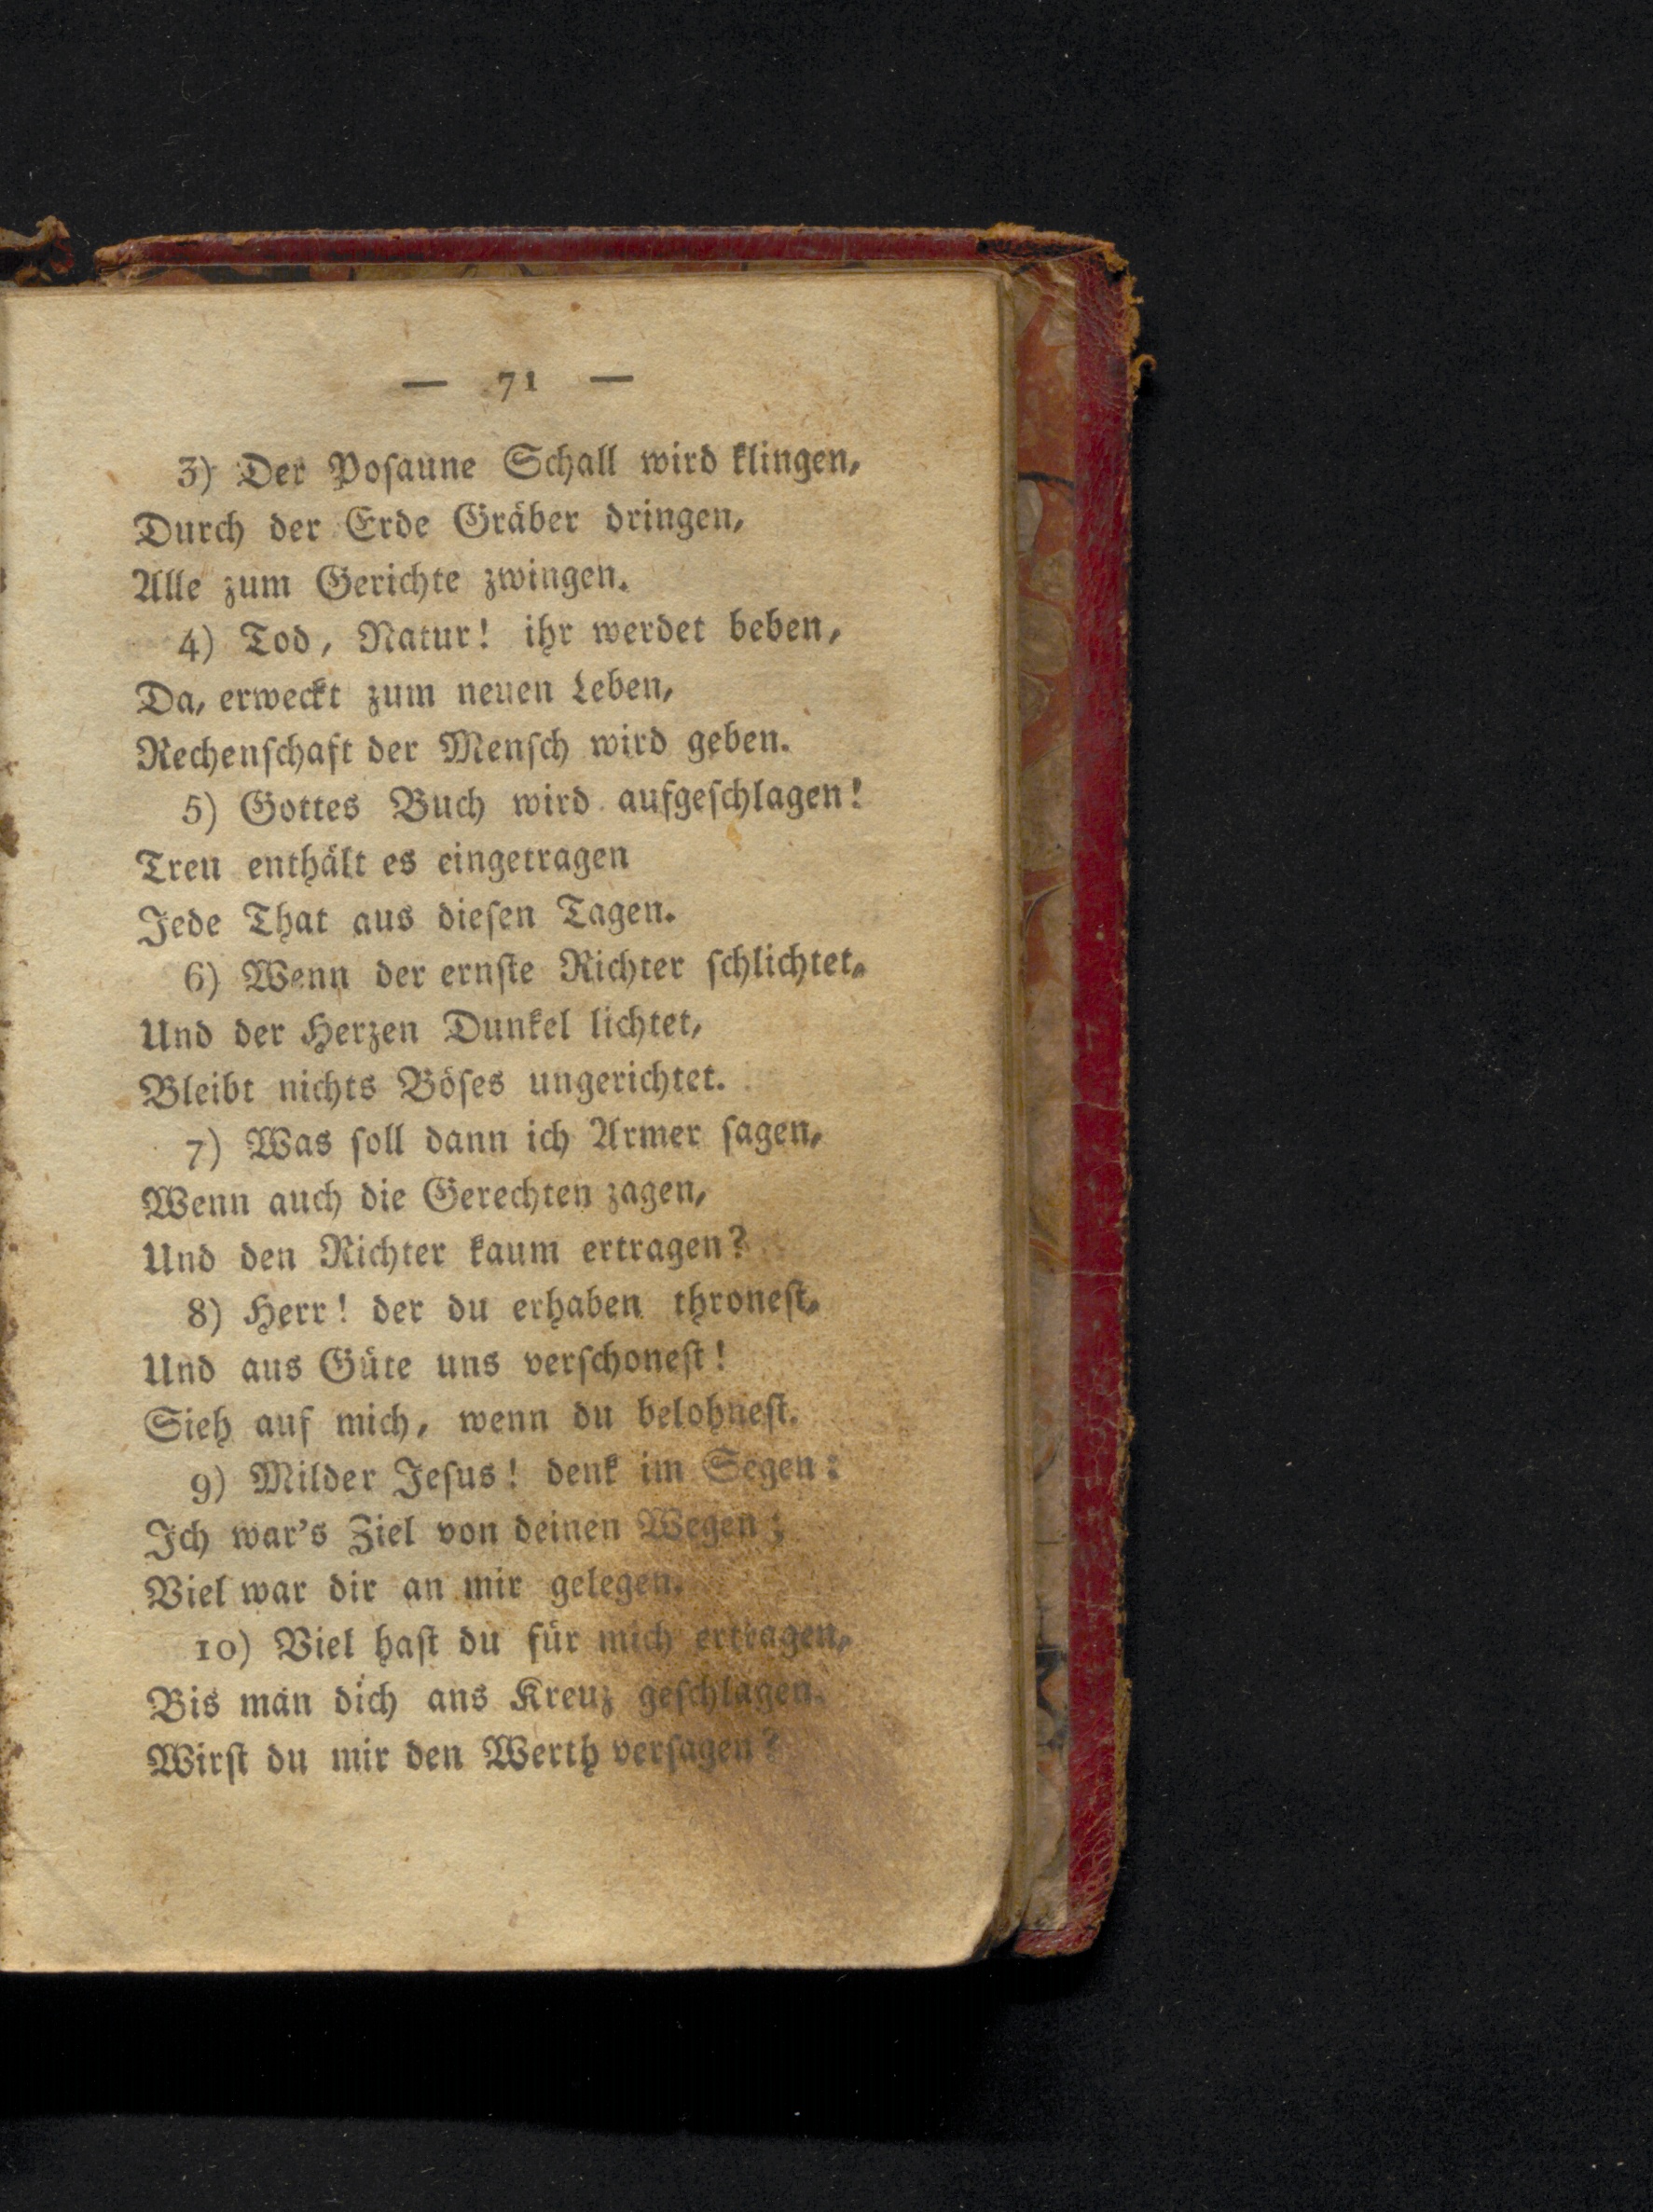 — 71 —
3) Der Poſaune Schall wird klingen,
Durch der Erde Gräber dringen,
Alle zum Gerichte zwingen.
4) Tod, Natur! ihr werdet beben,
Da, erweckt zum neuen Leben,
Rechenſchaft der Menſch wird geben.
5) Gottes Buch wird aufgeſchlagen!
Treu enthält es eingetragen
Jede That aus dieſen Tagen.
6) Wenn der ernſte Richter ſchlichtet,
Und der Herzen Dunkel lichtet,
Bleibt nichts Böſes ungerichtet.
7) Was ſoll dann ich Armer ſagen,
Wenn auch die Gerechten zagen,
Und den Richter kaum ertragen?
8) Herr! der du erhaben throneſt,
Und aus Güte uns verſchoneſt!
Sieh auf mich, wenn du belohneſt.
9) Milder Jeſus! denk im Segen:
Ich war's Ziel von deinen Wegen;
Viel war dir an mir gelegen.
10) Viel haſt du für mich ertragen,
Bis man dich ans Kreuz geſchlagen.
Wirſt du mir den Werth verſagen?